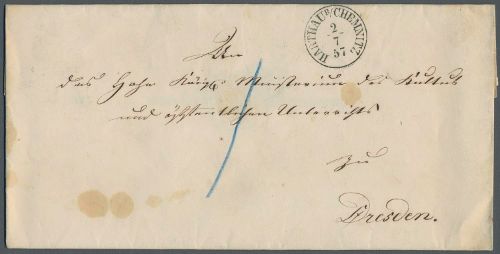 HARTHAU B/CHEMNITZ
2
7
57
An
das Hohe Königl. Ministerium des Kultus
und öffentlichen Unterrichts
zu
Dresden.